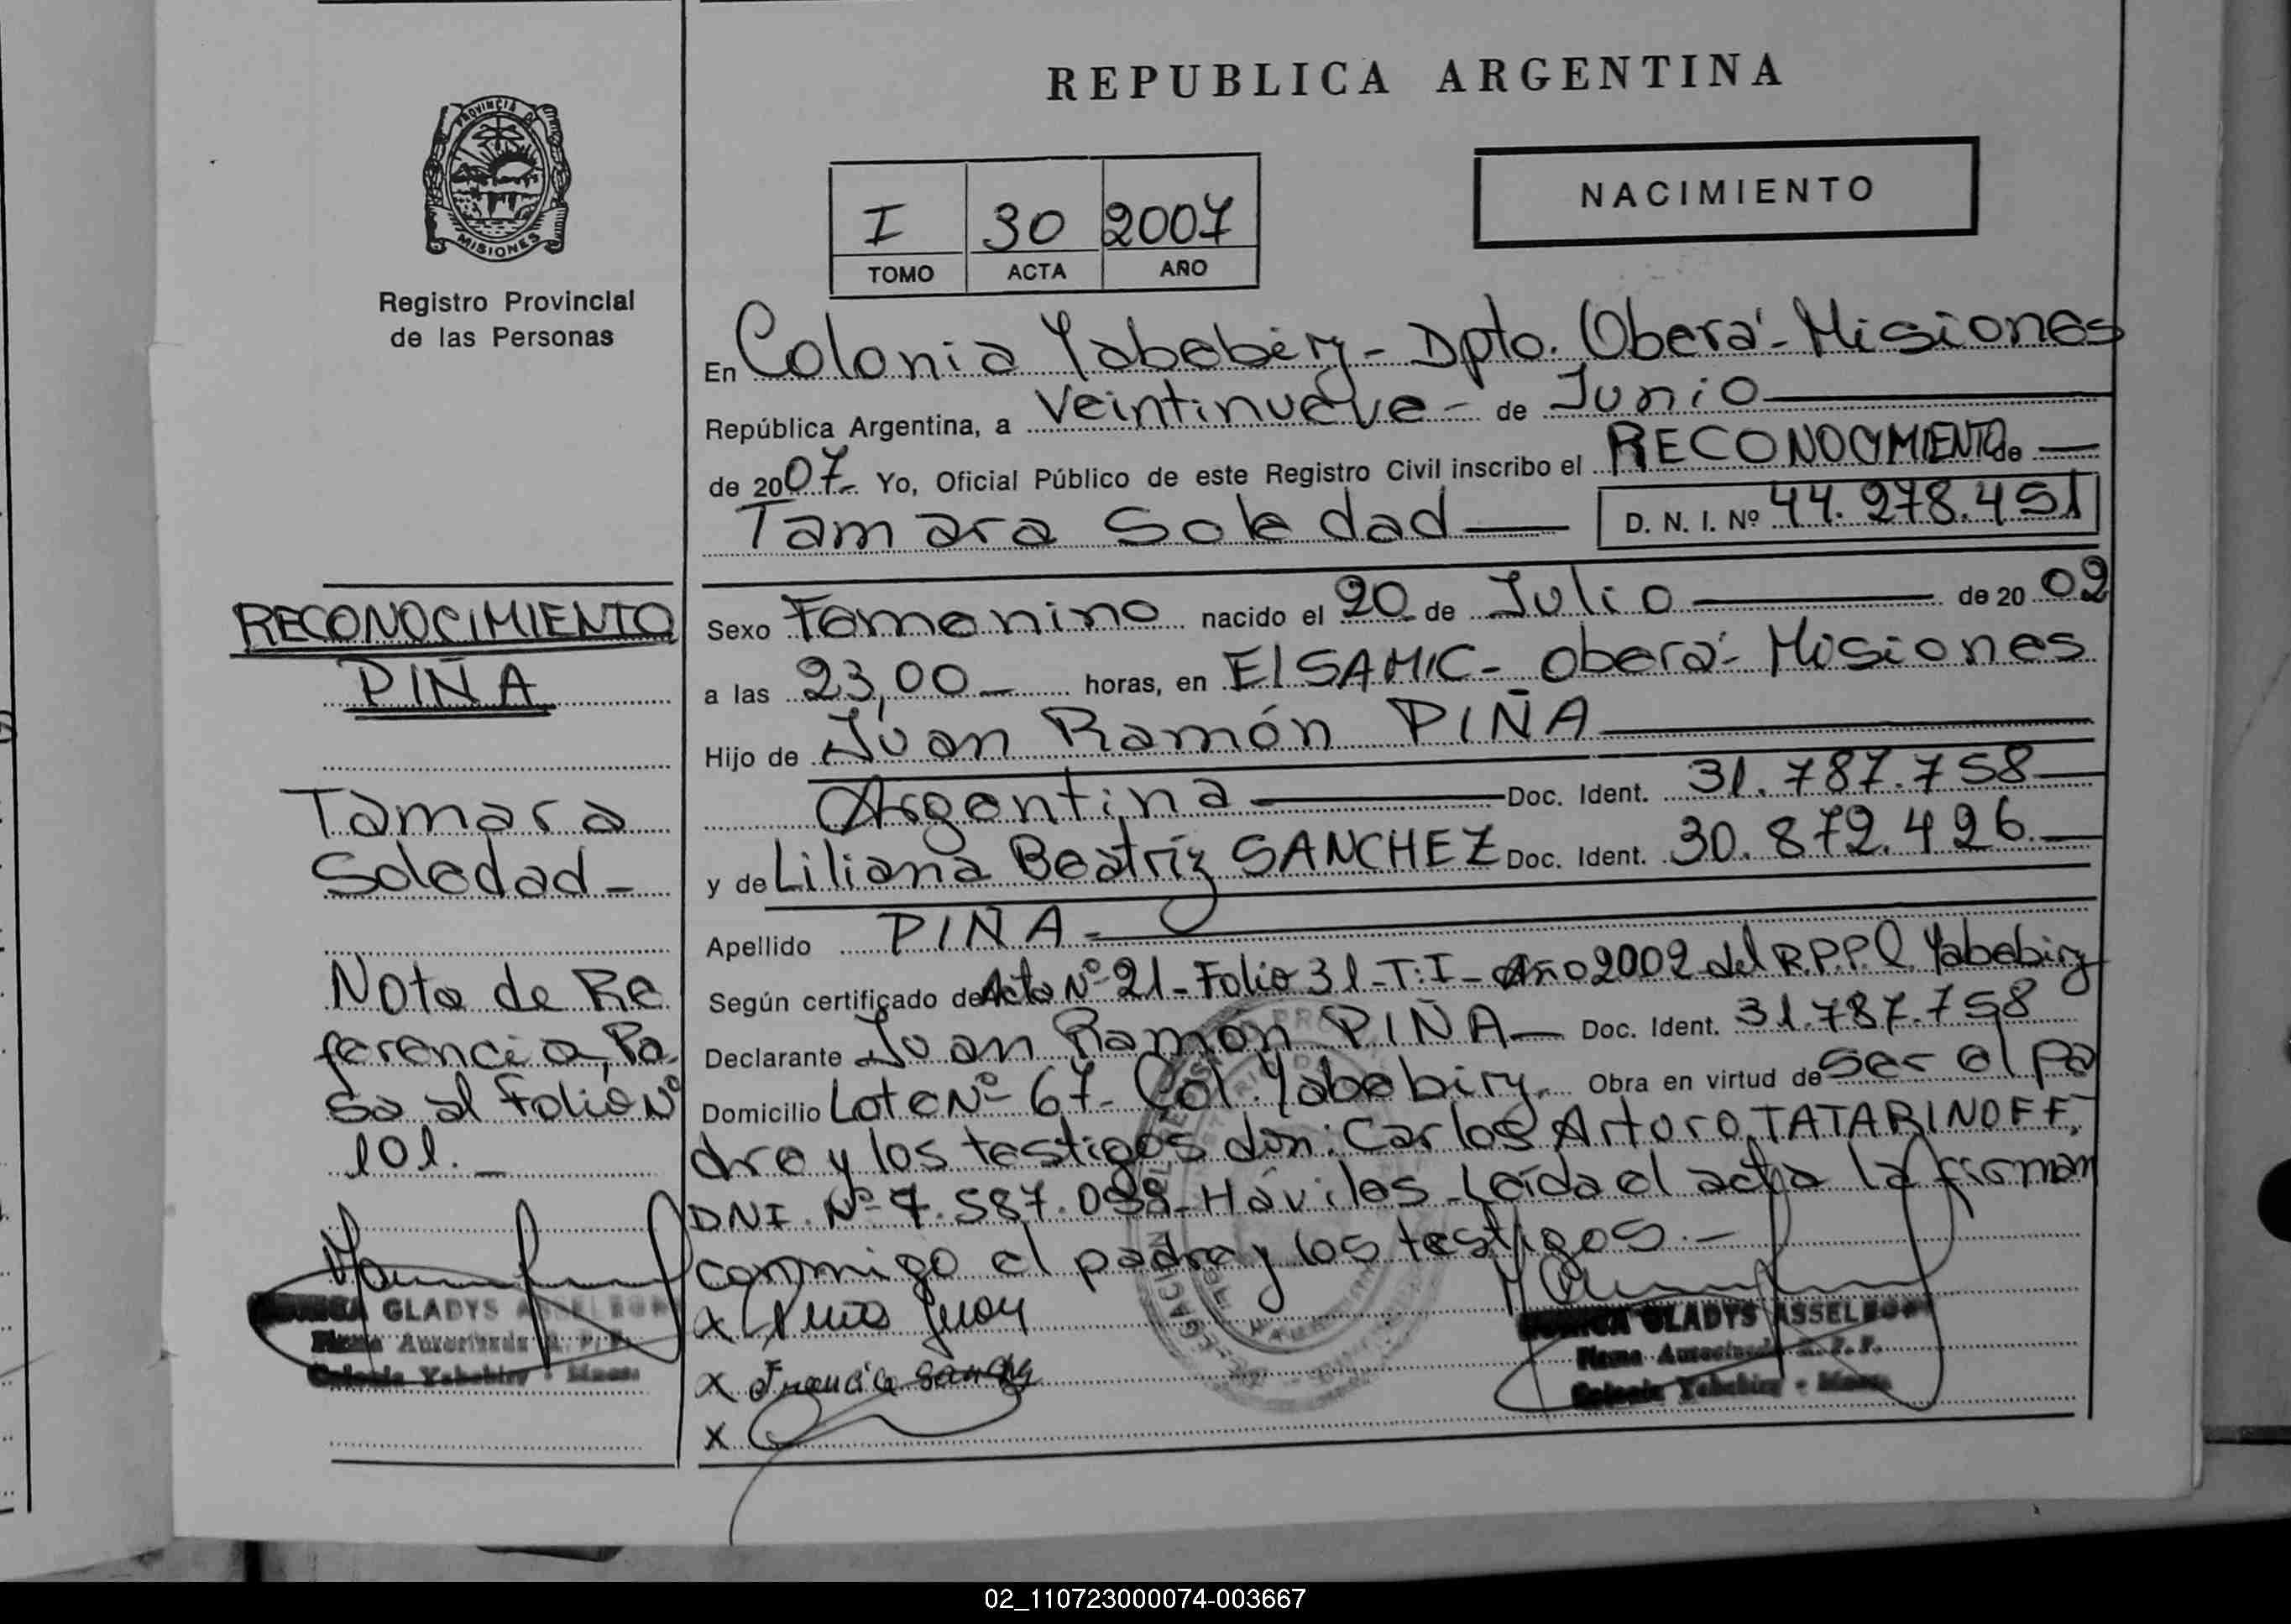 PROVINCIA DE
MISIONES
Registro Provincial
de las Personas
REPUBLICA ARGENTINA
NACIMIENTO
I 30 2007
TOMO ACTA AÑO
En Colonia Yabebiry - Dpto. Oberá - Misiones
República Argentina, a Veintinueve - de Junio
de 2007 - Yo, Oficial Público de este Registro Civil inscribo el RECONOCIMIENTO de
Tamara Soledad D. N. I. Nº 44.278.451
Sexo Femenino nacido el 20 de Julio de 20 02
a las 23,00 - horas, en El SAMIC - Oberá - Misiones
Hijo de Juan Ramón PIÑA
Argentina Doc. Ident. 31.787.758
y de Liliana Beatriz SANCHEZ Doc. Ident. 30.872.426
Apellido PIÑA -
Según certificado de Acta Nº 21 - Folio 31 - T: I - Año 2002 del R.P.P. Yabebiry
Declarante Juan Ramón PIÑA - Doc. Ident. 31.787.758
Domicilio Lote Nº 67 - Col. Yabebiry. Obra en virtud de Ser el pa
dre y los testigos don: Carlos Arturo TATARINOFF,
DNI Nº 7.587.098 - Háviles. Leída el acta la firman
conmigo el padre y los testigos. -
x Piña Juan
x
x
GLADYS ASSELBORN
Firma Autorizada R. P. P.
Colonia Yabebiry - Mnes.
RECONOCIMIENTO
PIÑA
Tamara
Soledad -
Nota de Re
ferencia, Pa
sa al Folio Nº
101. -
GLADYS ASSELBORN
Firma Autorizada R. P. P.
Colonia Yabebiry - Mnes.
02_110723000074-003667